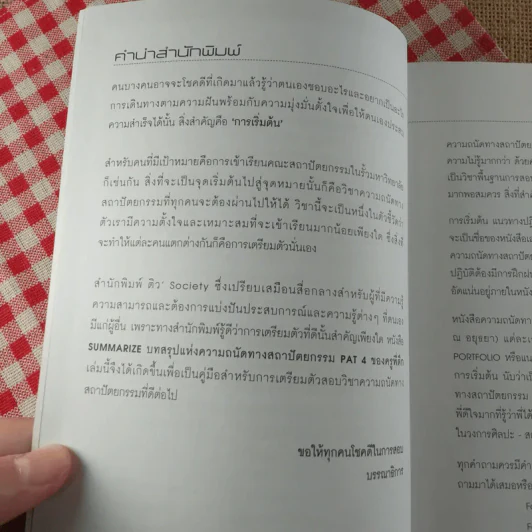 คำนำสำนักพิมพ์
คนบางคนอาจจะโชคดีที่เกิดมาแล้วรู้ว่าตนเองชอบอะไรและอยากเป็นอะไร
การเดินทางตามความฝันพร้อมกับความมุ่งมั่นตั้งใจเพื่อให้ตนเองประสบ
ความสำเร็จได้นั้น สิ่งสำคัญคือ 'การเริ่มต้น'
สำหรับคนที่มีเป้าหมายคือการเข้าเรียนคณะสถาปัตยกรรมในรั้วมหาวิทยาลัย
ก็เช่นกัน สิ่งที่จะเป็นจุดเริ่มต้นไปสู่จุดหมายนั้นก็คือวิชาความถนัดทาง
สถาปัตยกรรมที่ทุกคนจะต้องผ่านไปให้ได้ วิชานี้จะเป็นหนึ่งในตัวชี้วัดว่า
ตัวเรามีความตั้งใจและเหมาะสมที่จะเข้าเรียนมากน้อยเพียงใด ซึ่งสิ่งที่
จะทำให้แต่ละคนแตกต่างกันก็คือการเตรียมตัวนั่นเอง
สำนักพิมพ์ ติว' Society ซึ่งเปรียบเสมือนสื่อกลางสำหรับผู้ที่มีความรู้
ความสามารถและต้องการแบ่งปันประสบการณ์และความรู้ต่างๆ ที่ตนเอง
มีแก่ผู้อื่น เพราะทางสำนักพิมพ์รู้ดีว่าการเตรียมตัวที่ดีนั้นสำคัญเพียงใด หนังสือ
SUMMARIZE บทสรุปแห่งความถนัดทางสถาปัตยกรรม PAT 4 ของครูพี่ติ๊ก
เล่มนี้จึงได้เกิดขึ้นเพื่อเป็นคู่มือสำหรับการเตรียมตัวสอบวิชาความถนัดทาง
สถาปัตยกรรมที่ดีต่อไป
ขอให้ทุกคนโชคดีในการสอบ
บรรณาธิการ
ความถนัดทางสถาปัตย
ความไม่รู้มากกว่า ด้วยค
เป็นวิชาพื้นฐานการสอบ
มากพอสมควร สิ่งที่สำคั
การเริ่มต้น แนวทางปฏิ
จะเป็นชื่อของหนังสือเ
ความถนัดทางสถาปัตย
ปฏิบัติต้องมีการฝึกฝน
อัดแน่นอยู่ภายในหนัง
หนังสือความถนัดทาง
ณ อยุธยา) แต่ละเ
PORTFOLIO หรือแน
การเริ่มต้น นับว่าเป็
ทางสถาปัตยกรรม
พี่ดีใจมากที่รู้ว่าพี่ได้
ในวงการศิลปะ - ส
ทุกคำถามควรมีคำ
ถามมาได้เสมอหรือ